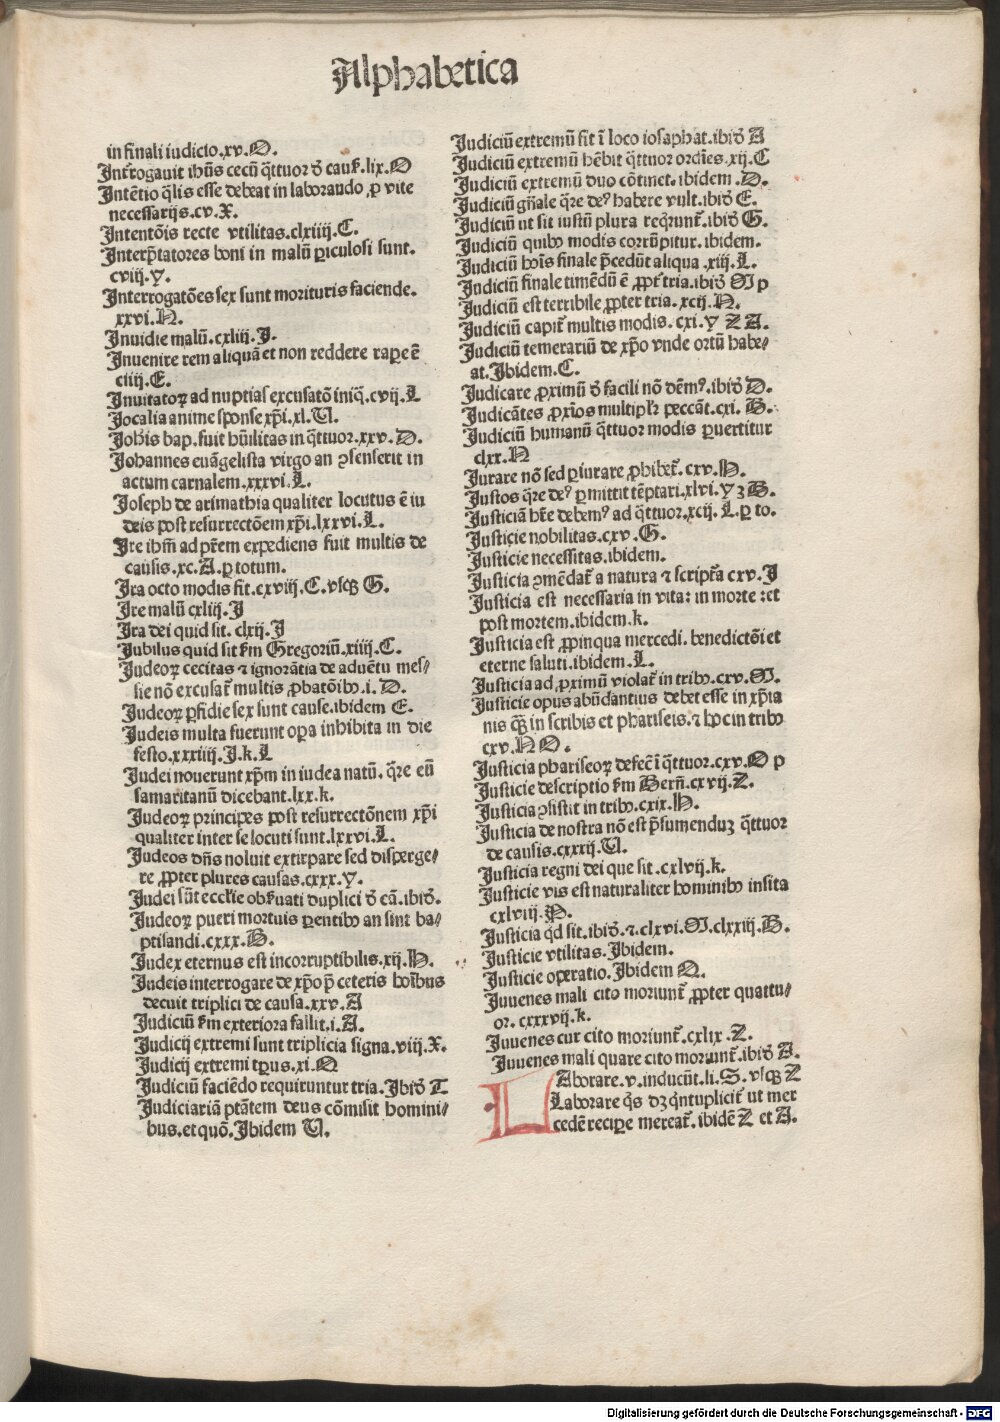 Alphabetica
in finali iudicio.xv.O.
Int̃rogauit ihũs cecũ q̃ttuor ð cauſ.lix.O
Intẽtio q̃lis esse debeat in laborando ꝓ vite
necessarijs.cv.X.
Intentõis recte vtilitas.clxiiij.C.
Interp̃tatores boni in malũ ꝑiculosi sunt.
cviij.Y.
Interrogatões sex sunt morituris faciende.
xxvi.N.
Inuidie malũ.cxliij.I.
Inuenire rem aliquã et non reddere rapeꝛe ẽ
ciiij.E.
Inuitatoꝝ ad nuptias excusatõ iniq̃.cvij.L
Jocalia anime sponse xp̃i.xl.U.
Johis bap.fuit hũilitas in q̃ttuor.xxv.D.
Johannes euãgelista virgo an ꝯsenserit in
actum carnalem.xxxvi.L.
Joseph de arimathia qualiter locutus ẽ iu
deis post resurrectõem xp̃i.lxxvi.L.
Ire ihm̃ ad pr̃em expediens fuit multis de
causis.xc.A.ꝑ totum.
Ira octo modis fit.cxviij.C.vsqꝫ G.
Ire malũ cxliij.I
Ira dei quid sit.clxij.I
Jubilus quid sit ẜm Gregoriũ.xiiij.C.
Judeoꝝ cecitas ⁊ ignorãtia de aduẽtu mes⸗
sie nõ excusat̃ multis ꝓbatõibꝰ.i.D.
Judeoꝝ ꝑfidie sex sunt cause.ibidem E.
Judeis multa fuerunt oꝑa inhibita in die
festo.xxxiiij.I.k.L
Judei nouerunt xp̃m in iudea natũ.q̃re eũ
samaritanũ dicebant.lxx.k.
Judeoꝝ principes post resurrectõnem xp̃i
qualiter inter se locuti sunt.lxxvi.L.
Judeos dñs noluit extirpare sed disperge⸗
re ꝓpter plures causas.cxxx.Y.
Judei sũt eccl̃ie obẜuati duplici ð cã.ibiđ.
Judeoꝝ pueri mortuis ꝑentibꝰ an sint ba⸗
ptisandi.cxxx.B.
Judex eternus est incorruptibilis.xij.H.
Judeis interrogare de xp̃o p̃ ceteris hoĩbus
decuit triplici de causa.xxv.A
Judiciũ ẜm exteriora fallit.i.A.
Judicij extremi sunt triplicia signa.viij.X.
Judicij extremi tp̃us.xi.N
Judiciũ faciẽdo requiruntur tria.Ibiđ T
Judiciariã ptãtem deus cõmisit homini⸗
bus.et quõ.Ibidem U.
Judiciũ extremũ fit ĩ loco iosaphat.ibiđ A
Judiciũ extremũ hẽbit q̃ttuor ordĩes.xij.C
Judiciũ extremũ duo cõtinet.ibidem.D.
Judiciũ gñale q̃re deꝰ habere vult.ibiđ E.
Judiciũ ut sit iustũ plura reqrunt̃.ibiđ G.
Judiciũ quibꝰ modis corrũpitur.ibidem.
Judiciũ hoĩs finale p̃cedũt aliqua.xiij.L.
Judiciũ finale timẽdũ ẽ ꝓpt̃ tria.ibiđ M p
Judiciũ est terribile ꝓpter tria.xcij.N.
Judiciũ capit̃ multis modis.cxi.Y Z A.
Judiciũ temerariũ de xp̃o vnde ortũ habe⸗
at.Ibidem.C.
Judicare ꝓximũ ð facili nõ dẽmꝰ.ibiđ D.
Judicãtes ꝓxĩos multiplr̃ peccãt.cxi.B.
Judiciũ humanũ q̃ttuor modis ꝑuertitur
clxx.N
Jurare nõ sed ꝑiurare ꝓhibet̃.cxv.H.
Justos q̃re deꝰ ꝑmittit tẽptari.xlvi.Y ꝫ B.
Justiciã hr̃e debemꝰ ad q̃ttuor.xcij.L.ꝑ to.
Justicie nobilitas.cxv.G.
Justicie necessitas.ibidem.
Justicia ꝯmẽdat̃ a natura ⁊ script̃a cxv.I
Justicia est necessaria in vita: in morte :et
post mortem.ibidem.k.
Justicia est ꝓpinqua mercedi.benedictõi et
eterne saluti.ibidem.L.
Justicia ad ꝓximũ violat̃ in tribꝰ.cxv.M.
Justicie opus abũdantius debet esse in xp̃ia
nis qꝫ̃ in scribis et phariseis.⁊ hoc in tribꝰ
cxv.N O.
Justicia phariseoꝝ defec̃ ĩ q̃ttuor.cxv.O p
Justicie descriptio ẜm Berñ.cxvij.Z.
Justicia ꝯsistit in tribꝰ.cxix.H.
Justicia de nostra nõ est p̃sumenduꝫ q̃ttuor
de causis.cxxxij.U.
Justicia regni dei que sit.cxlvij.k.
Justicie vis est naturaliter hominibꝰ insita
cxlviij.P.
Justicia qđ sit.ibiđ.⁊.clxvi.M.clxxiij.B.
Justicie vtilitas.Ibidem.
Justicie operatio.Ibidem Q.
Juuenes mali cito moriunt̃ ꝓpter quattu⸗
or.cxxxvij.k.
Juuenes cur cito moriunt̃.cxlix.Z.
Juuenes mali quare cito moriunt̃.ibiđ A.
LAborare.v.inducũt.li.S.vsqꝫ Z
Laborare q̃s dꝫ q̃ntuplicit̃ ut mer
cedẽ recipe mereat̃.ibidẽ Z et A.
Digitalisierung gefördert durch die Deutsche Forschungsgemeinschaft - DFG